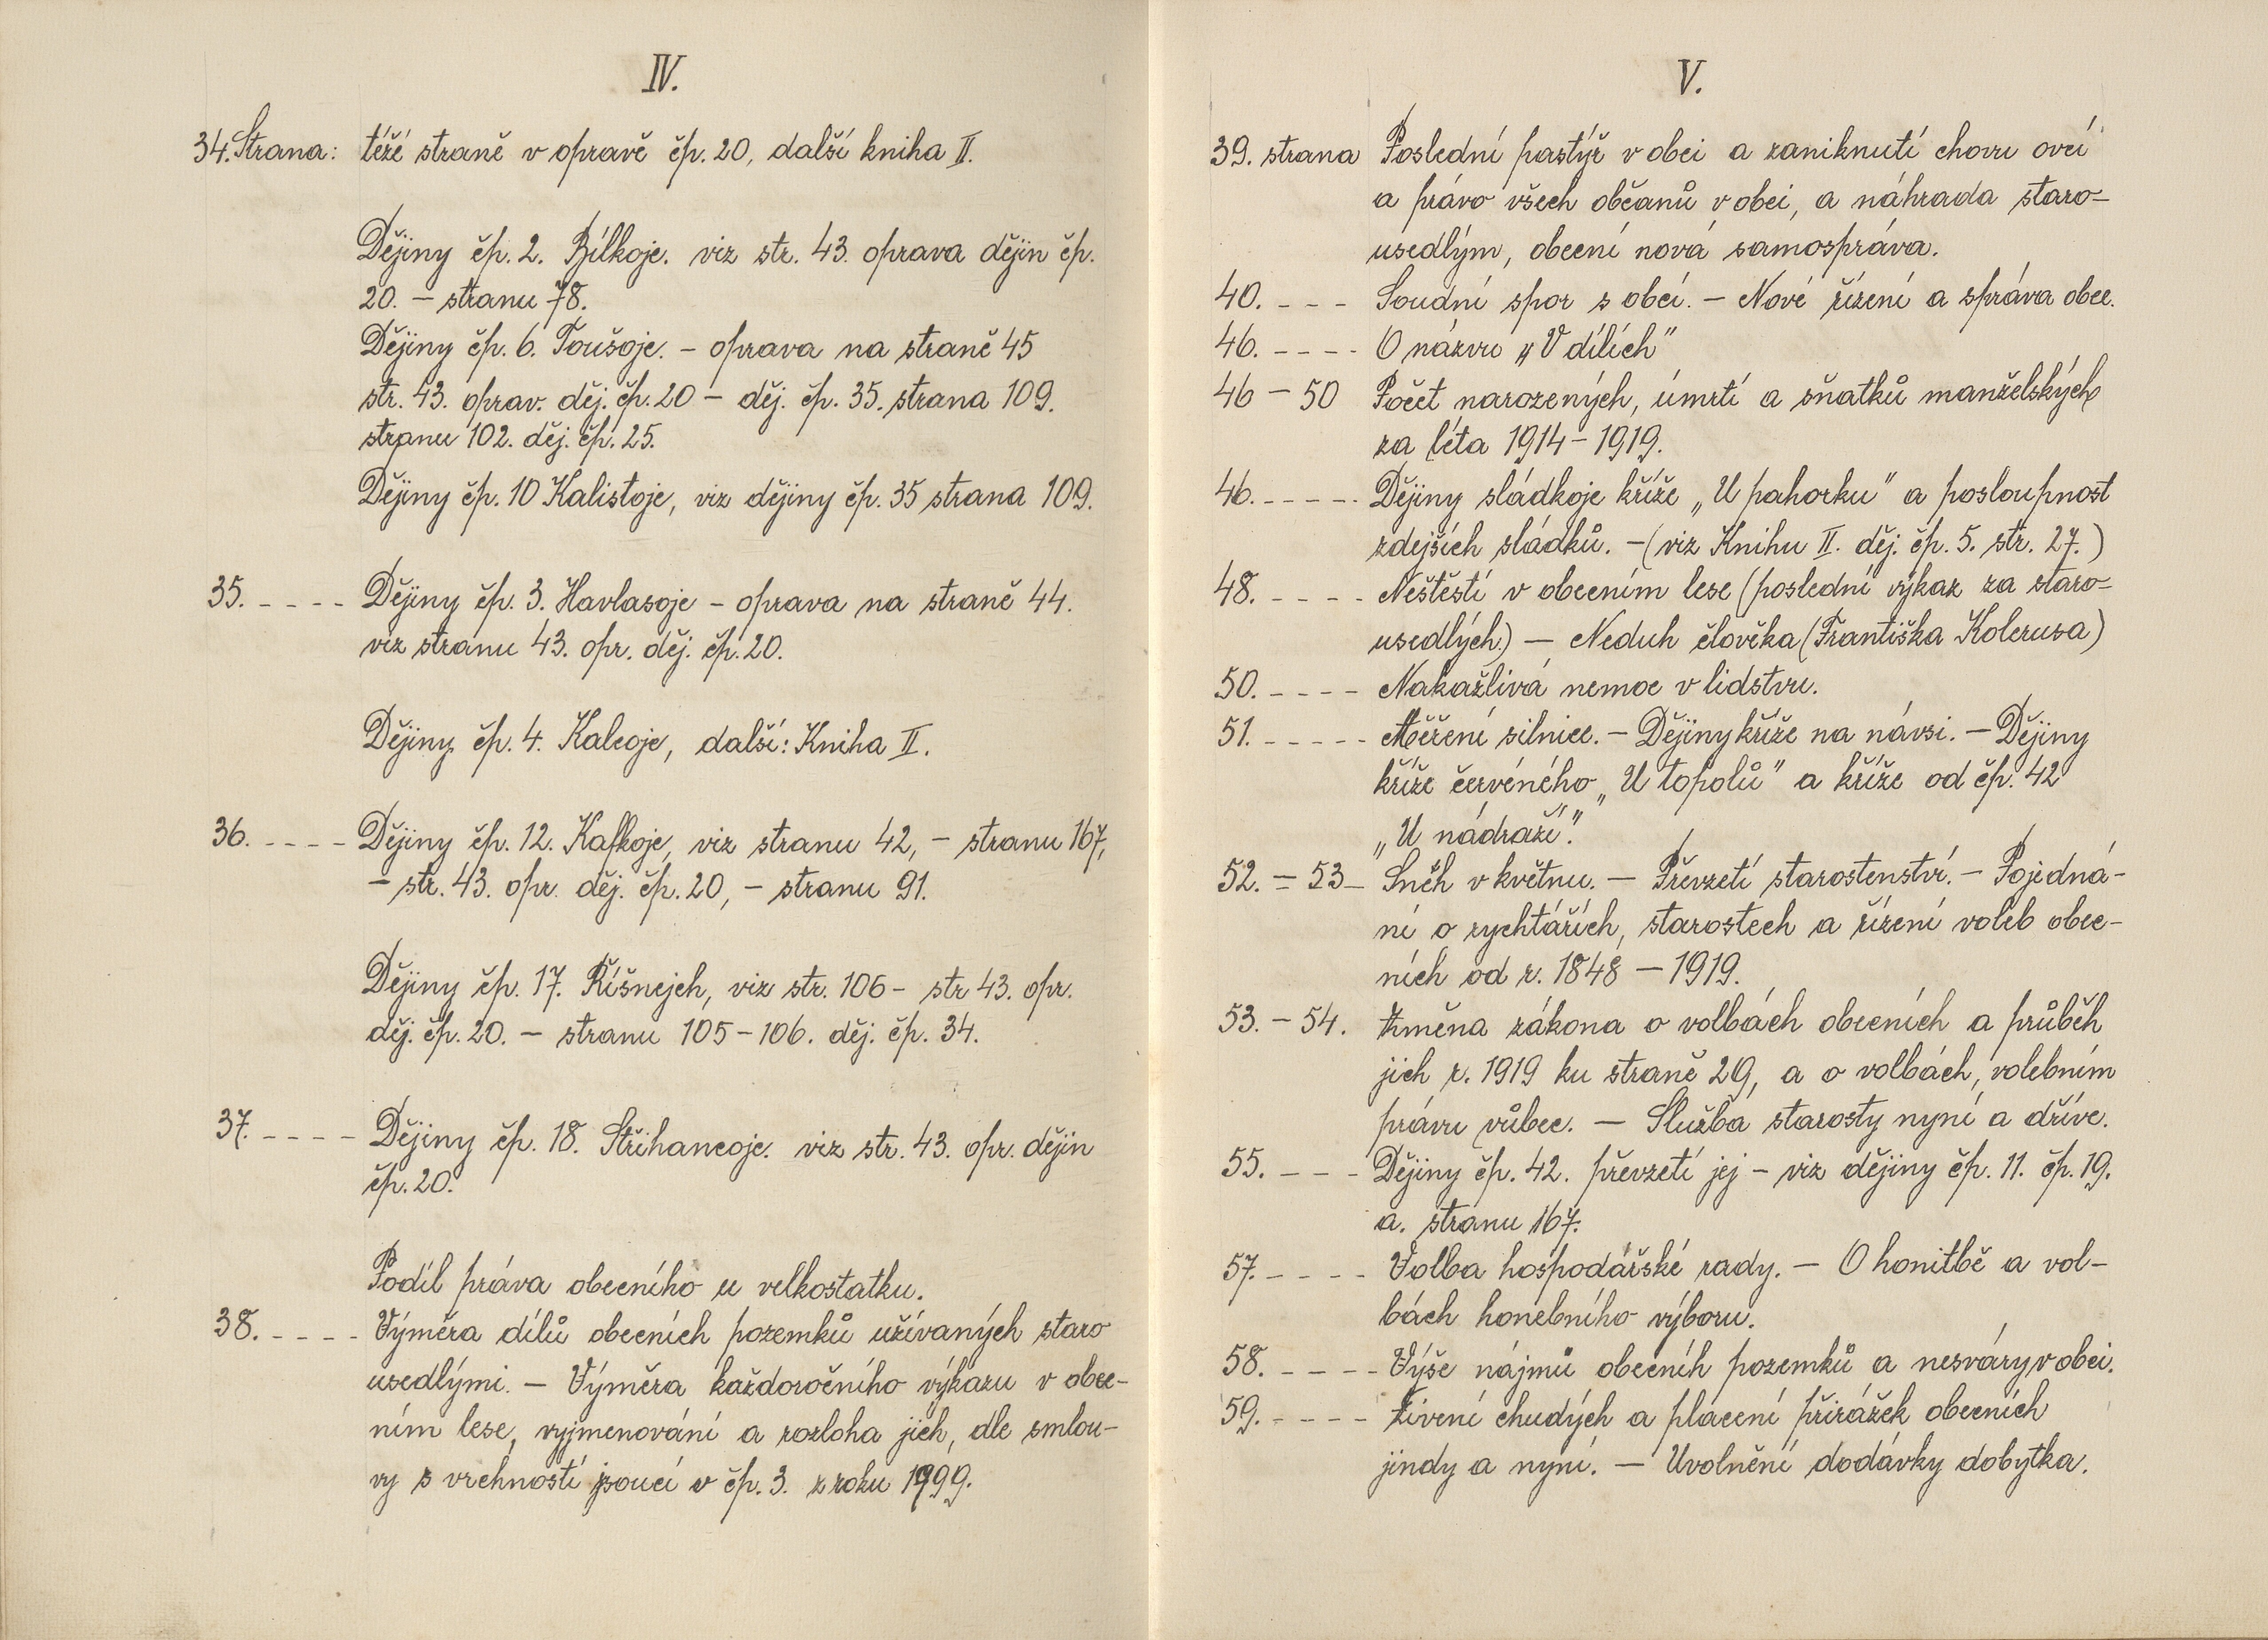 IV.
34. Strana: téžé straně v opravě čp. 20, další kniha II.
Dějiny čp. 2. Bílkoje. viz str. 43. oprava dějin čp.
20. – stranu 78.
Dějiny čp. 6. Toušoje. – oprava na straně 45
str. 43. oprav. děj. čp. 20 – děj. čp. 35. strana 109.
stranu 102. děj. čp. 25.
Dějiny čp. 10 Kalistoje, viz dějiny čp. 35 strana 109.
35. - - - - Dějiny čp. 3. Havlasoje – oprava na straně 44.
viz stranu 43. opr. děj. čp. 20.
Dějiny čp. 4. Kalcoje, další: Kniha II.
36. - - - - Dějiny čp. 12. Kafkoje, viz stranu 42, – stranu 167,
– str. 43. opr. děj. čp. 20, – stranu 91.
Dějiny čp. 17. Říšnejch, viz str. 106 – str 43. opr.
děj. čp. 20. – stranu 105 – 106. děj. čp. 34.
37. - - - - Dějiny čp. 18. Střihancoje. viz str. 43. opr. dějin
čp. 20.
Podíl práva obecního u velkostatku.
38. - - - - Výměra dílů obecních pozemků užívaných staro
usedlými. – Výměra každoročního výkazu v obec-
ním lese, vyjmenování a rozloha jich, dle smlou-
vy s vrchností jsoucí v čp. 3. z roku 1999.
V.
39. strana Poslední pastýř v obci a zaniknutí chovu ovcí
a právo všech občanů v obci, a náhrada staro-
usedlým, obecní nová samospráva.
40. - - - Soudní spor s obcí. – Nové řízení a správa obce.
46. - - - - O názvu „V dílích"
46 – 50 Počet narozených, úmrtí a sňatků manželských
za léta 1914 – 1919.
46. - - - - - Dějiny sládkoje kříže „U pahorku" a posloupnost
zdejších sládků. – (viz Knihu II. děj. čp. 5. str. 27.)
48. - - - - Neštěstí v obecním lese (poslední výkaz za staro-
usedlých.) – Neduh člověka (Františka Kolerusa)
50. - - - - Nakažlivá nemoc v lidstvu.
51. - - - - - Měření silnice. – Dějiny kříže na návsi. – Dějiny
kříže červéného „U topolů" a kříže od čp. 42
„U nádraží".
52. – 53 – Sněh v květnu. – Převzetí starostenství. – Pojedná-
ní o rychtářích, starostech a řízení voleb obec-
ních od r. 1848 – 1919.
53. – 54. Změna zákona o volbách obecních a průběh
jich r. 1919 ku straně 29, a o volbách, volebním
právu vůbec. – Služba starosty nyní a dříve.
55. - - - Dějiny čp. 42. převzetí jej – viz dějiny čp. 11. čp. 19.
a. stranu 167.
57. - - - - Volba hospodářské rady. – O honitbě a vol-
bách honebního výboru.
58. - - - - Výše nájmů obecníh pozemků a nesváry v obci.
59. - - - - Živení chudých a placení přirážek obecních
jindy a nyní. – Uvolnění dodávky dobytka.